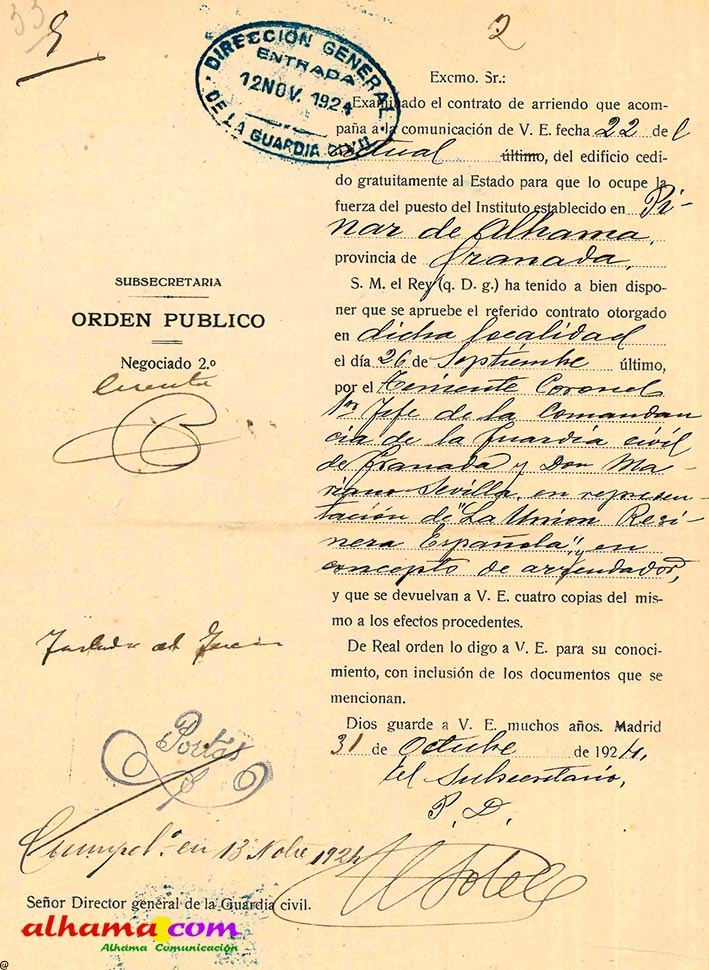 2
DIRECCIÓN GENERAL
ENTRADA
12 NOV. 1924
DE LA GUARDIA CIVIL
Excmo. Sr.:
Examinado el contrato de arriendo que acom-
paña a la comunicación de V. E. fecha 22 del
actual último, del edificio cedi-
do gratuitamente al Estado para que lo ocupe la
fuerza del puesto del Instituto establecido en Pi-
nar de Alhama,
provincia de Granada,
S. M. el Rey (q. D. g.) ha tenido a bien dispo-
ner que se apruebe el referido contrato otorgado
en dicha localidad
el día 26 de Septiembre último,
por el Teniente Coronel
1er Jefe de la Comandan
cia de la Guardia civil
de Granada y Don Ma-
riano Sevilla, en represen-
tación de "La Union Resi-
nera Española", en
concepto de arrendador,
y que se devuelvan a V. E. cuatro copias del mis-
mo a los efectos procedentes.
De Real orden lo digo a V. E. para su conoci-
miento, con inclusión de los documentos que se
mencionan.
Dios guarde a V. E. muchos años. Madrid
31 de Octubre de 1924.
El Subsecretario,
P. D.
SUBSECRETARIA
ORDEN PUBLICO
Negociado 2.º
Cuenta
Portas
Cumpl.º en 13 Nobre 1924
Señor Director general de la Guardia civil.
alhama.com
Alhama Comunicación
@